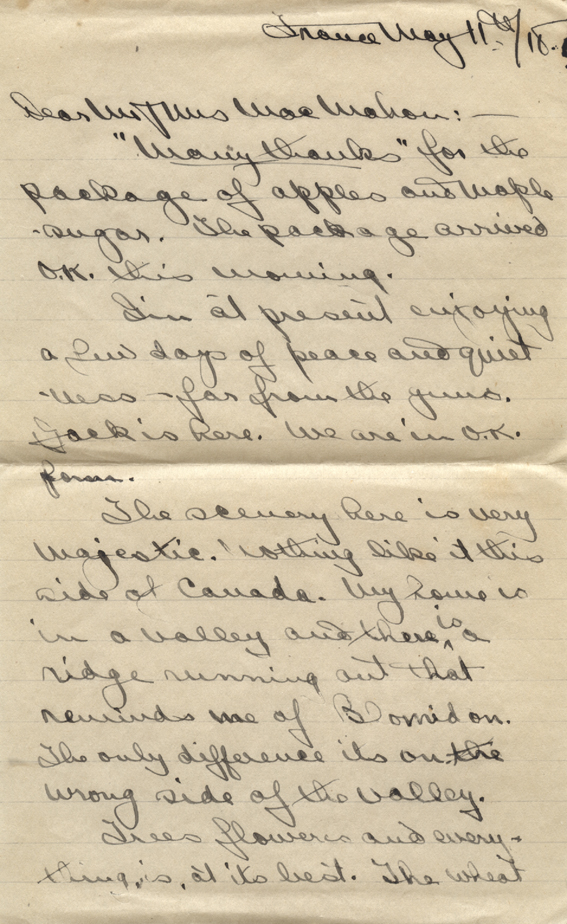 France May 11th/18.
Dear Mr & Mrs MacMahon:—
"Many thanks" for the
package of apples and Maple
-sugar. The package arrived
O.K. this morning.
I'm at present enjoying
a few days of peace and quiet
-ness - far from the guns.
Jack is here. We are in O.K.
form.
The scenery here is very
majestic. Nothing like it this
side of Canada. My home is
in a valley and there is a
ridge running out that
reminds me of Blomidon.
The only difference its on the
wrong side of the valley.
Trees flowers and every-
thing, is, at its best. The wheat